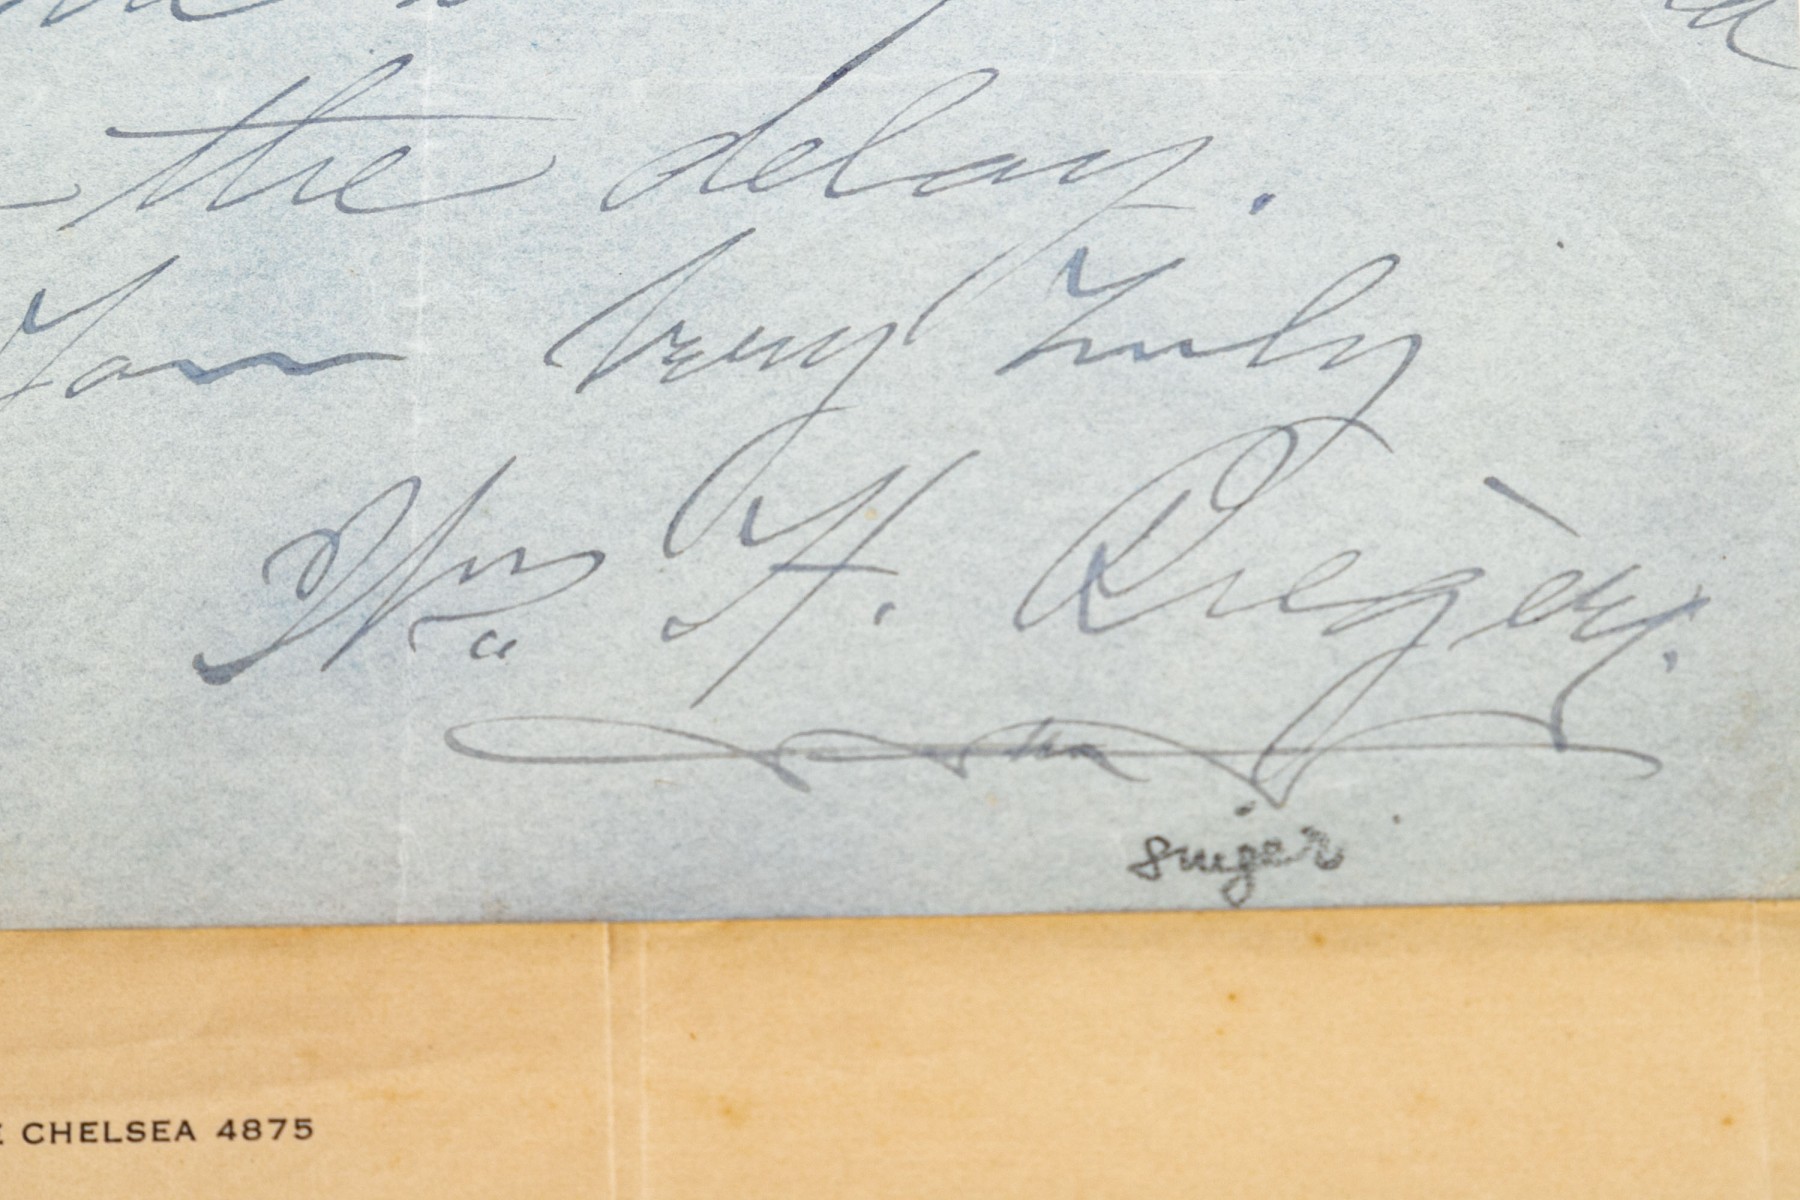 the delay.
Your very truly
Wm. H. Rieger.
singer
CHELSEA 4875